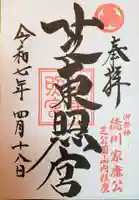 奉拝
御祭神
徳川家康公
芝公園山内鎮座
芝東照宮
令和七年四月十八日